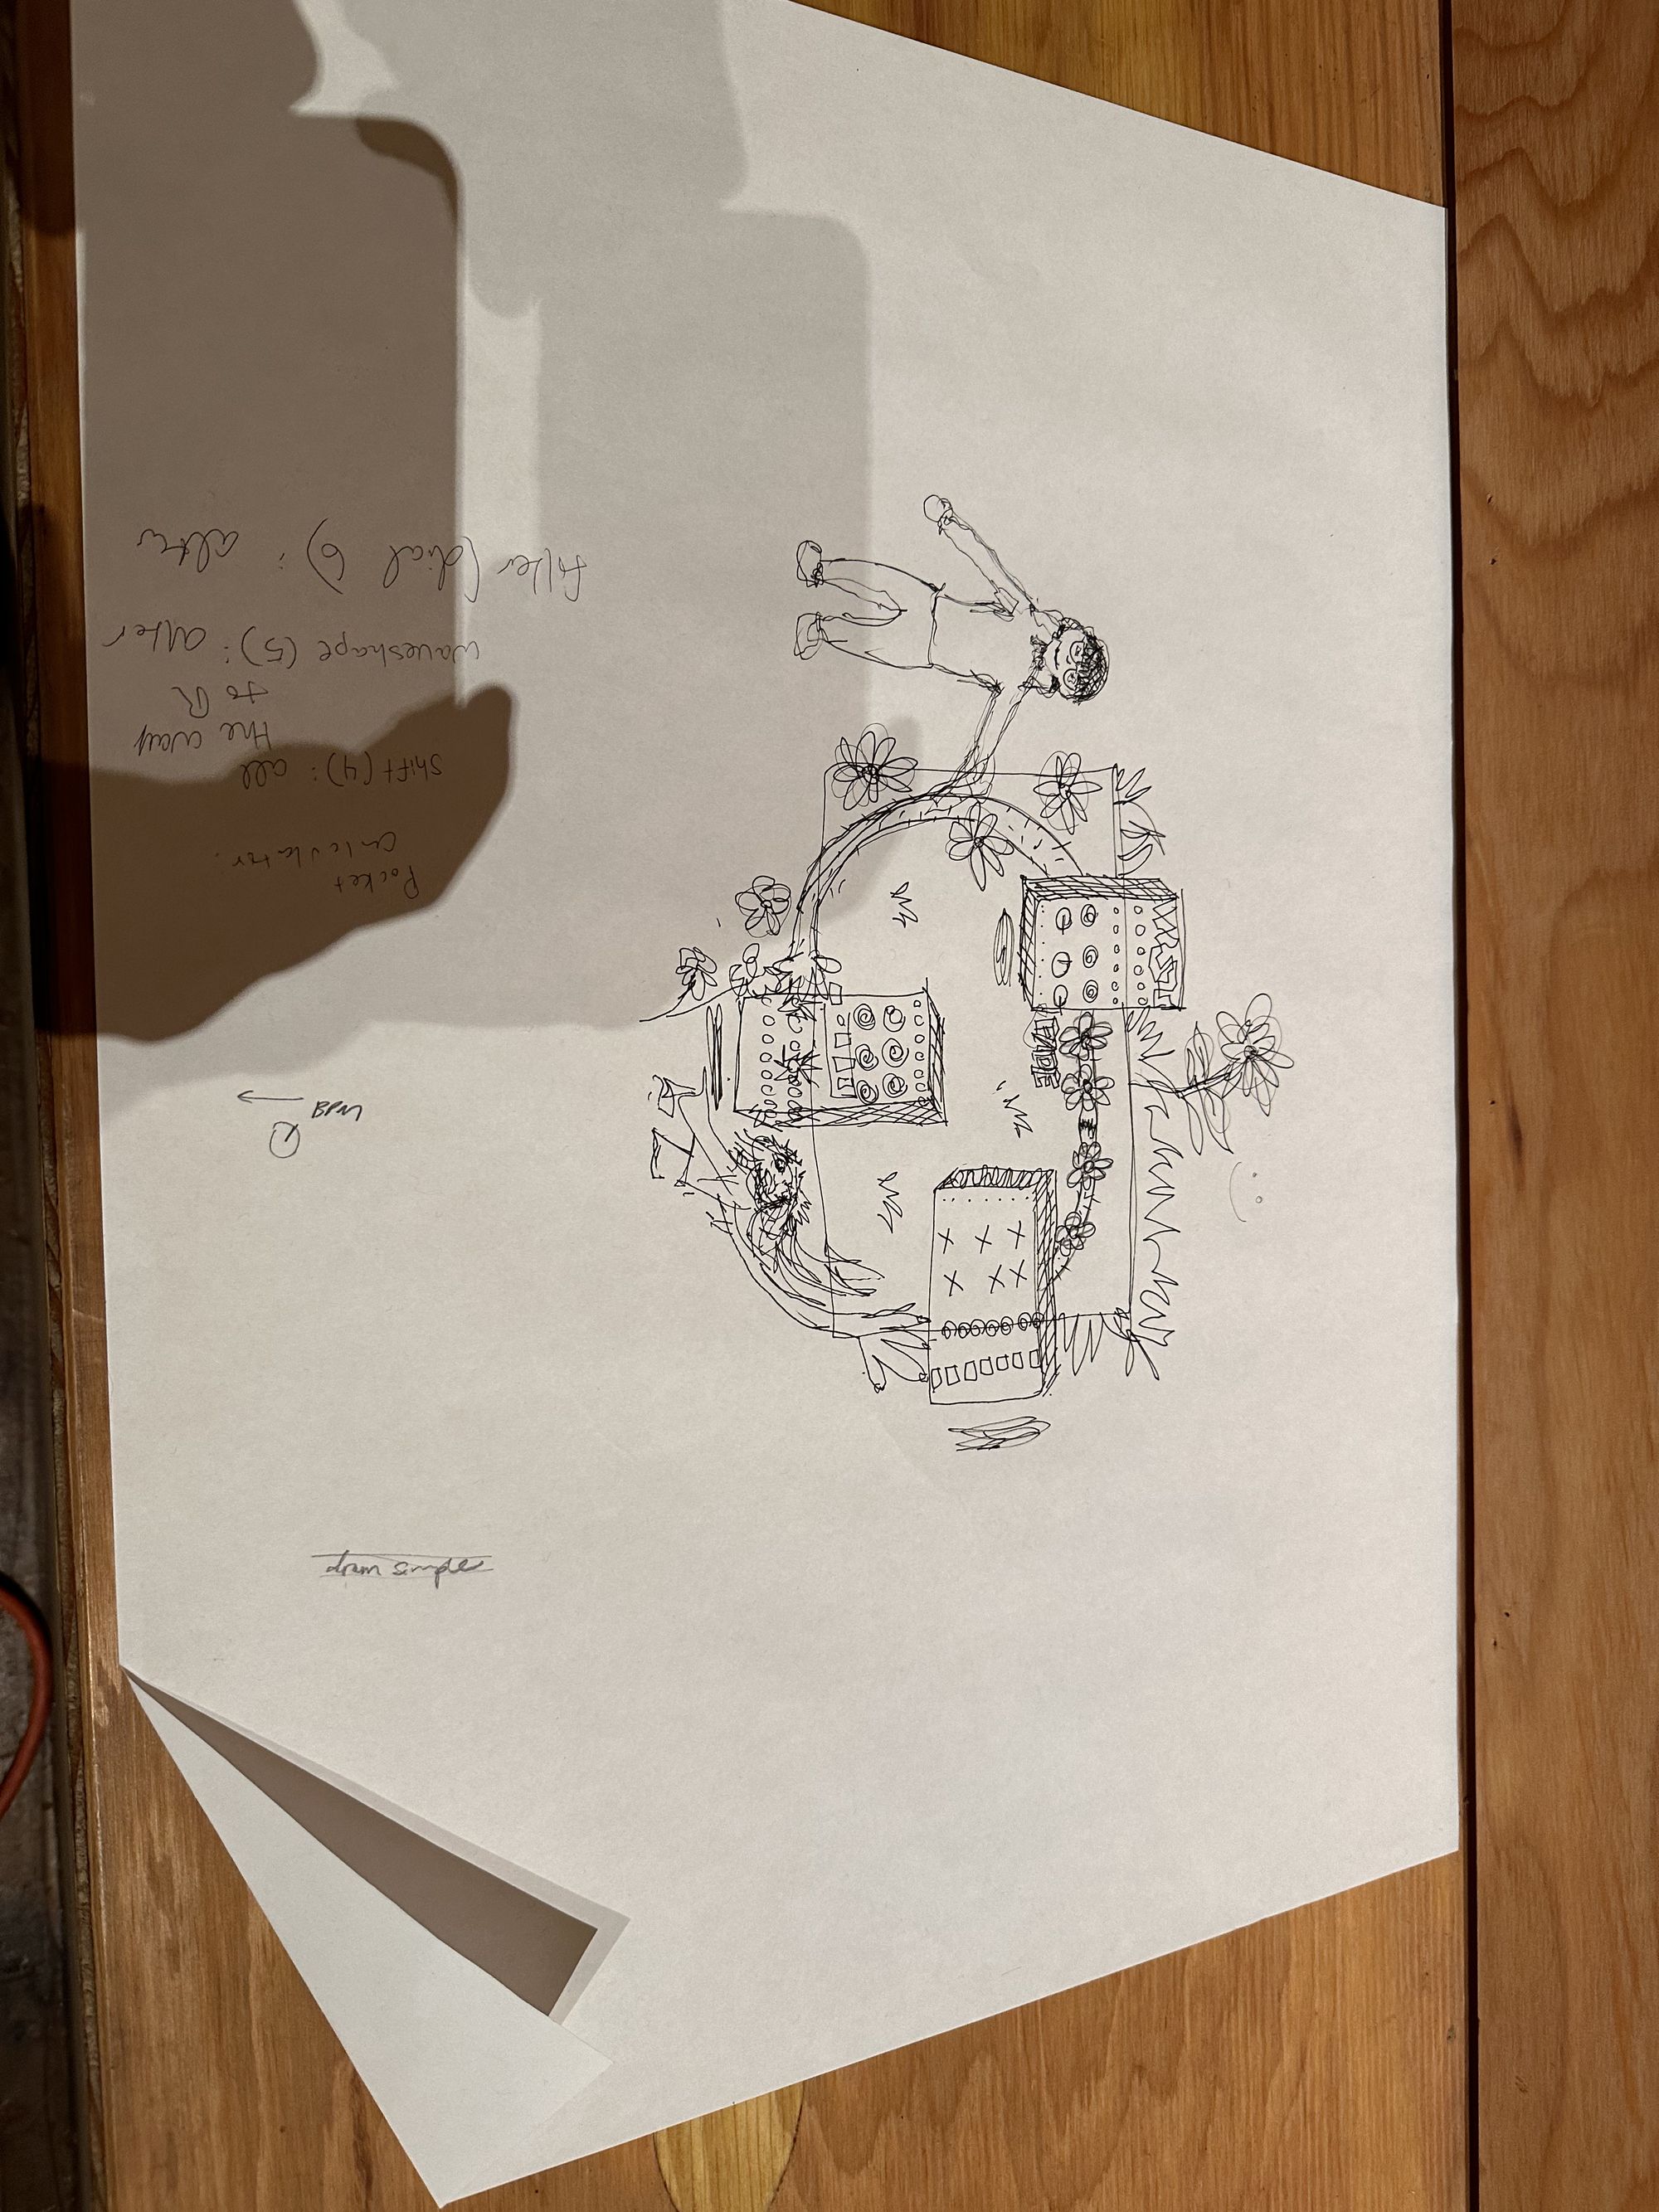 Pocket
calculator.
shift (4): all
the way
to R
waveshape (5): alter
filter (dial 6): alter
BPM
drum simple